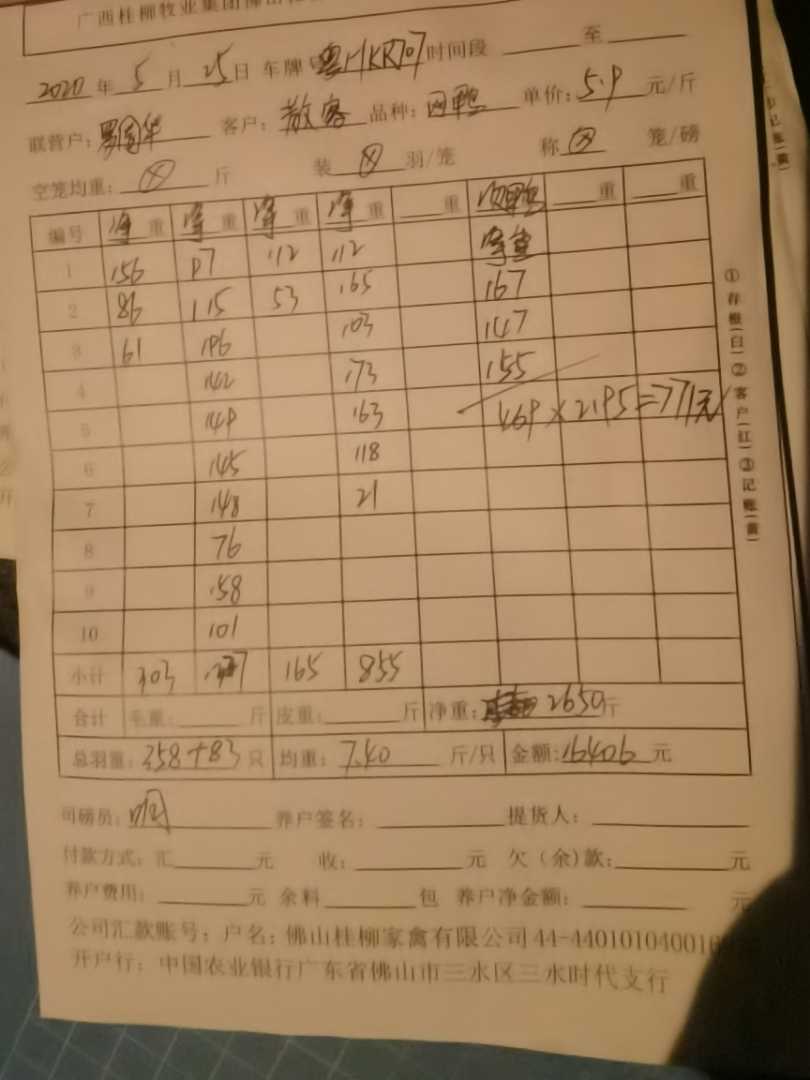 广西桂柳牧业集团佛山
2020年5月25日 车牌号 粤HKR707 时间段 至
联营户: 罗国华 客户: 散客 品种: 肉鸭 单价: 5.9 元/斤
空笼均重: 斤 装 羽/笼 称 笼/磅
编号 净重 净重 净重 净重 重 次鸭 重 重
净重
1 156 112 112 167
2 86 115 53 165 147
3 61 103 155
4 142 173
5 149 163 469×2195=771元
6 145 118
7 148 21
8 76
9 158
10 101
小计 303 165 855
合计 毛重: 斤 皮重: 斤 净重: 2650斤
总羽量: 358+83 只 均重: 7.40 斤/只 金额: 16406 元
司磅员: 养户签名: 提货人:
付款方式: 汇 元 收: 元 欠(余)款: 元
养户费用: 元 余料 包 养户净金额: 元
公司汇款账号: 户名: 佛山桂柳家禽有限公司 44-4401010400
开户行: 中国农业银行广东省佛山市三水区三水时代支行
①存根(白)②客户(红)③记账(黄)